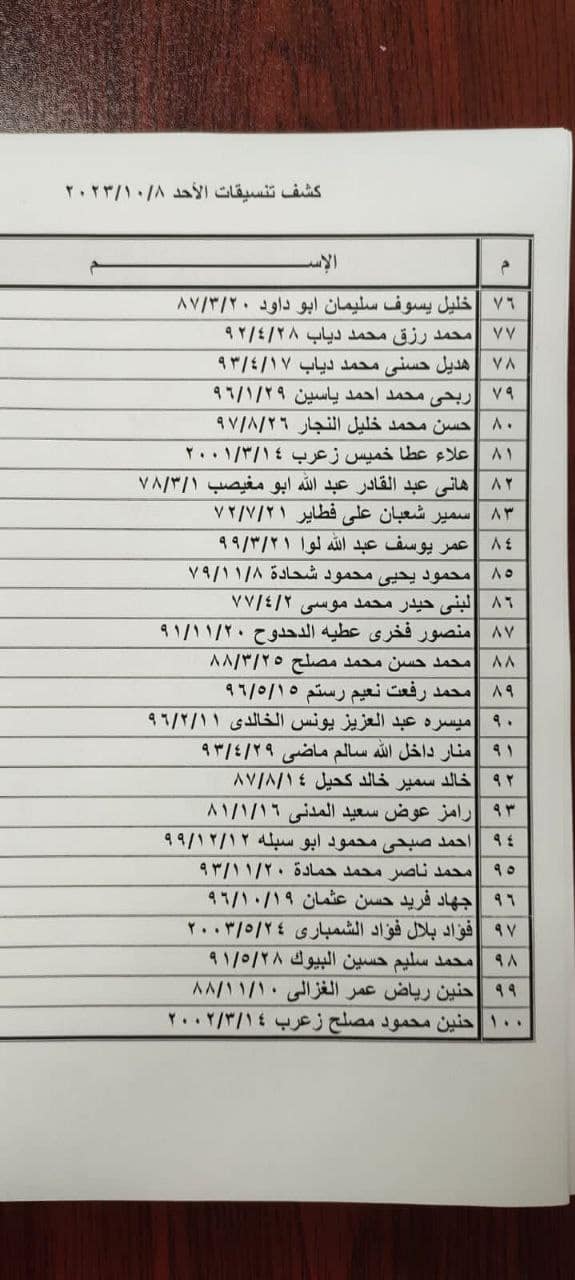 كشف تنسيقات الأحد ٢٠٢٣/١٠/٨
م الإســـــــــــــــــم
٧٦ خليل يسوف سليمان ابو داود ٨٧/٣/٢٠
٧٧ محمد رزق محمد دياب ٩٢/٤/٢٨
٧٨ هديل حسنى محمد دياب ٩٣/٤/١٧
٧٩ ربحى محمد احمد ياسين ٩٦/١/٢٩
٨٠ حسن محمد خليل النجار ٩٧/٨/٢٦
٨١ علاء عطا خميس زعرب ٢٠٠١/٣/١٤
٨٢ هانى عبد القادر عبد الله ابو مغيصب ٧٨/٣/١
٨٣ سمير شعبان على فطاير ٧٢/٧/٢١
٨٤ عمر يوسف عبد الله لوا ٩٩/٣/٢١
٨٥ محمود يحيى محمود شحادة ٧٩/١١/٨
٨٦ لبنى حيدر محمد موسى ٧٧/٤/٢
٨٧ منصور فخرى عطيه الدحدوح ٩١/١١/٢٠
٨٨ محمد حسن محمد مصلح ٨٨/٣/٢٥
٨٩ محمد رفعت نعيم رستم ٩٦/٥/١٥
٩٠ ميسره عبد العزيز يونس الخالدى ٩٦/٢/١١
٩١ منار داخل الله سالم ماضى ٩٣/٤/٢٩
٩٢ خالد سمير خالد كحيل ٨٧/٨/١٤
٩٣ رامز عوض سعيد المدنى ٨١/١/١٦
٩٤ احمد صبحى محمود ابو سبله ٩٩/١٢/١٢
٩٥ محمد ناصر محمد حمادة ٩٣/١١/٢٠
٩٦ جهاد فريد حسن عثمان ٩٦/١٠/١٩
٩٧ فؤاد بلال فؤاد الشمبارى ٢٠٠٣/٥/٢٤
٩٨ محمد سليم حسين البيوك ٩١/٥/٢٨
٩٩ حنين رياض عمر الغزالى ٨٨/١١/١٠
١٠٠ حنين محمود مصلح زعرب ٢٠٠٢/٣/١٤